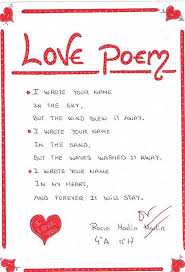 LOVE POEM
I WROTE YOUR NAME
IN THE SKY,
BUT THE WIND BLEW IT AWAY.
I WROTE YOUR NAME
IN THE SAND,
BUT THE WAVES WASHED IT AWAY.
I WROTE YOUR NAME
IN MY HEART,
AND FOREVER IT WILL STAY.
I LOVE YOU
Rocio Media
4ºA nº17